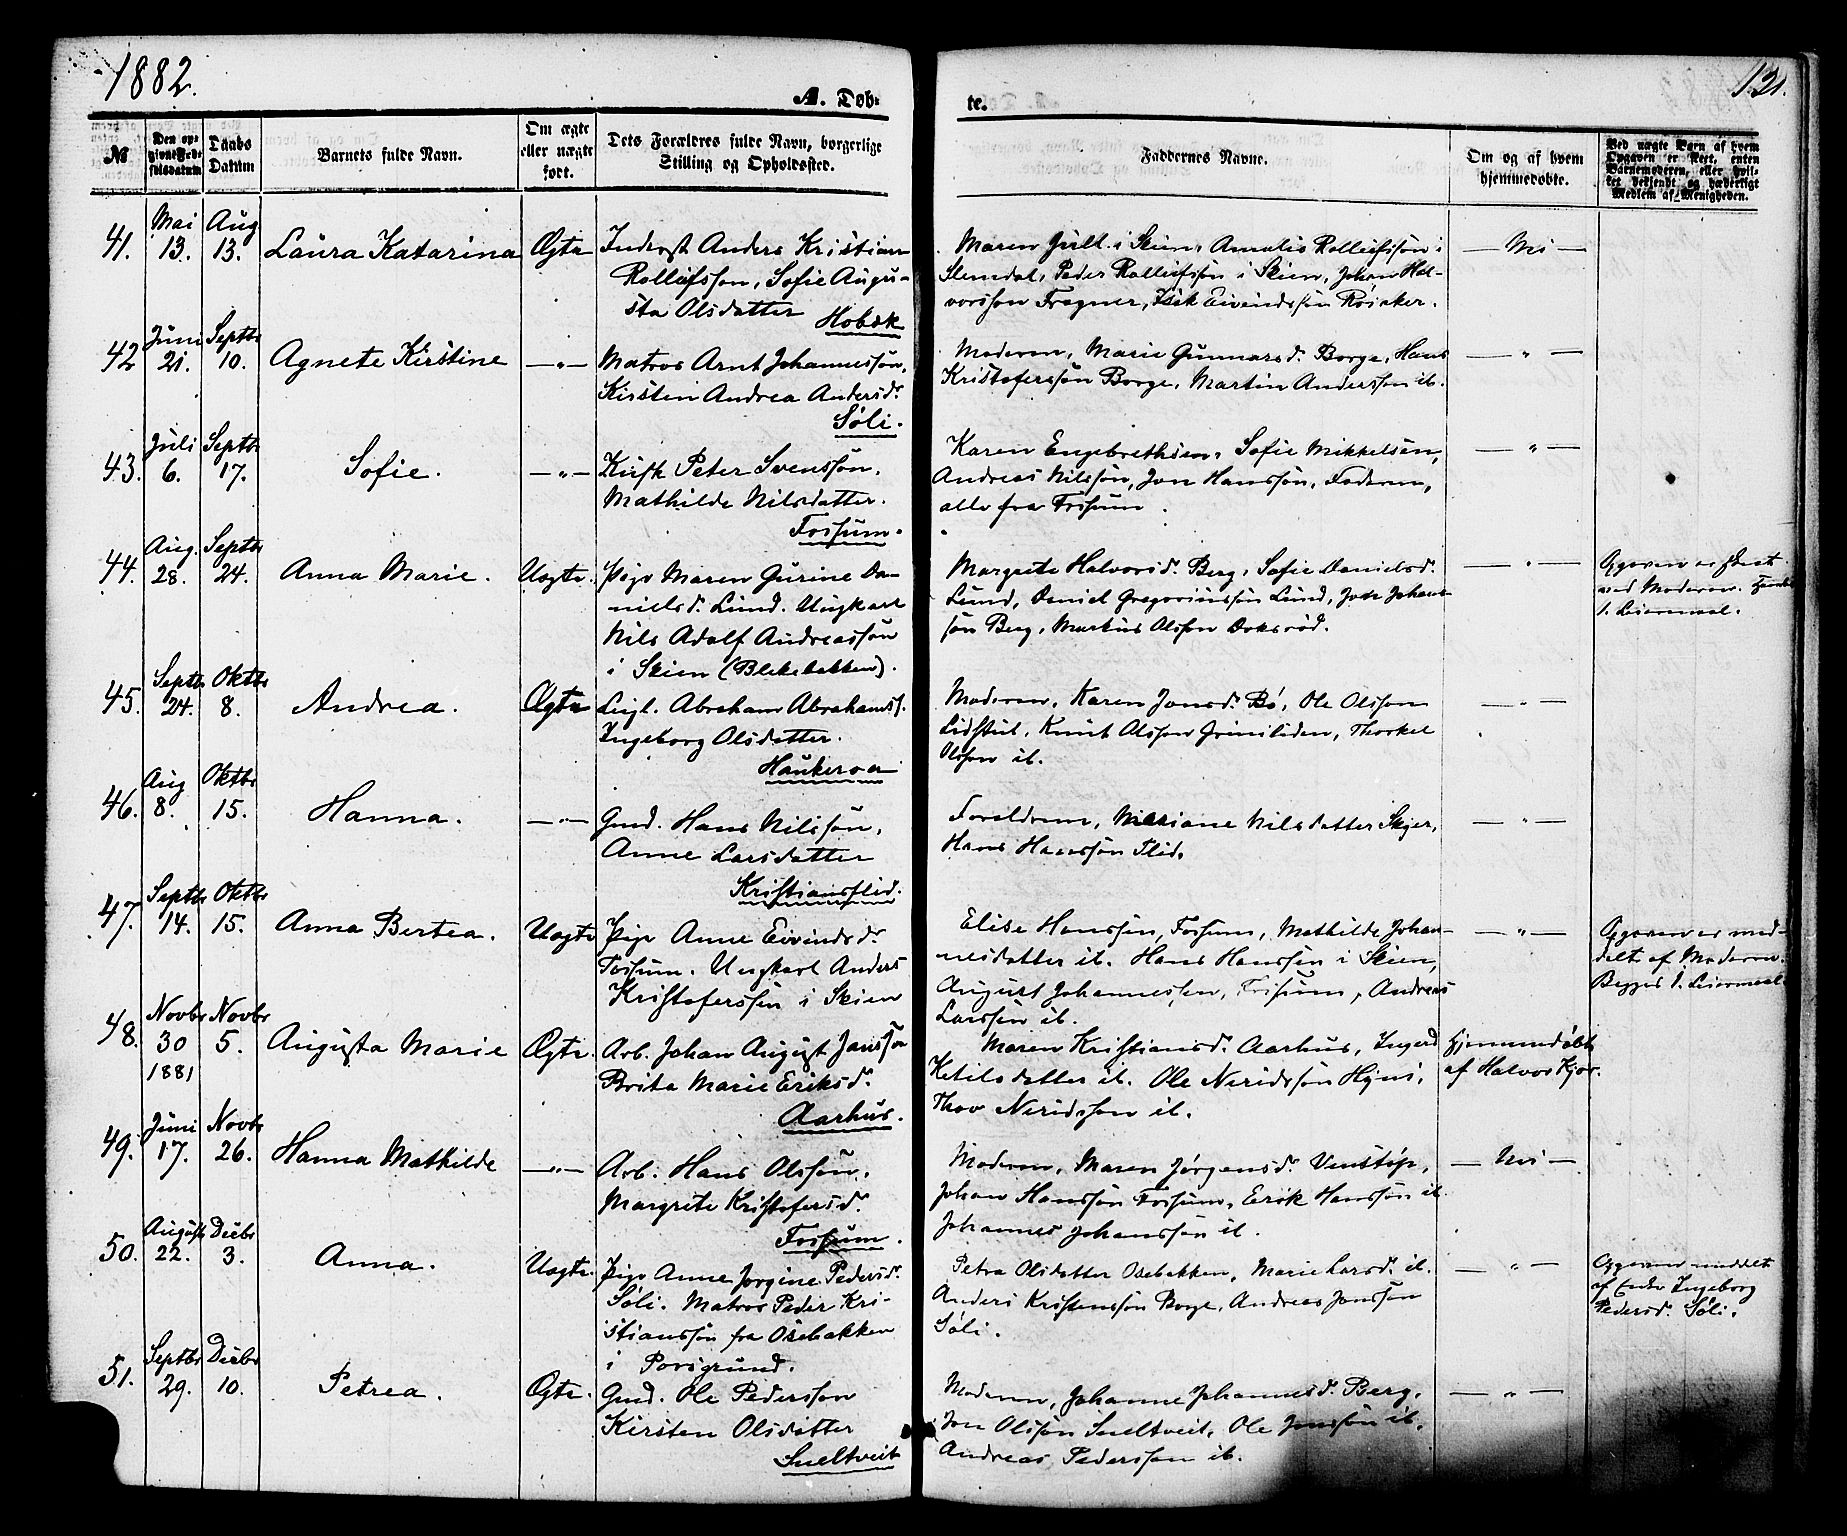 1882.
A. Døb-
te.
121.
№
Den op-
givne Fød-
selsdatum
Daabs
Datum
Barnets fulde Navn.
Om ægte
eller uægte
født.
Dets Forældres fulde Navn, borgerlige
Stilling og Opholdssted.
Faddernes Navne.
Om og af hvem
hjemmedøbte.
Ved uægte Barn af hvem
Opgaven er skeet, enten
Barnemoderen, eller hvil-
ket bekjendt og hæderligt
Medlem af Menigheden.
41.
Mai
13.
Aug
13.
Laura Katarina
Ægte
Inderst Anders Kristian
Rolleifsson, Sofie Augu-
sta Olsdatter
Hobæk
Maren Jull i Skien, Amalie Rolleifssøn i
Slemdal, Peder Rolleifssøn i Skien, Johan Hal-
vorsson Fragner, Isak Eivindssøn Røsaker.
— Nei —
42
Juni
21.
Septbr
10.
Agnete Kirstine
— „ —
Matros Arnt Johannessøn,
Kirsten Andrea Andersd.
Søli.
Moderen, Marie Gunnarsd. Borge, Hans
Kristoferssøn Borge, Martin Anderssen ib.
— „ —
43.
Juli
6.
Septbr
17.
Sofie.
— „ —
Kusk Peter Svenssøn.
Mathilde Nilsdatter.
Fossum.
Karen Engebrethsen, Sofie Mikkelsen,
Andreas Nilssøn, Jon Hanssøn, Faderen,
alle fra Fossum.
— „ —
44.
Aug.
28.
Septbr
24.
Anna Marie.
Uægte.
Pige Maren Gurine Da-
nielsd. Lund. Ungkarl
Nils Adolf Andreassøn
i Skien (Blekebakken).
Margrete Halvorsd. Berg, Sofie Danielsd.
Lund, Daniel Gregoriussøn Lund, Jon Johans-
søn Berg, Markus Olsson Doksrød.
— „ —
Opgaven er skeet
ved Moderen.
1. Leiermaal.
45.
Septbr
24.
Oktbr
8.
Andrea.
Ægte
Leigl. Abraham Abrahamss.
Ingeborg Olsdatter.
Haukeroa
Moderen, Karen Jonsd. Bø, Ole Olsson
Lidstul, Knut Olsson Griniliden, Thorkel
Olsson ib.
— „ —
46.
Aug
8.
Oktbr
15.
Hanna.
— „ —
Gmd. Hans Nilssøn,
Anne Larsdatter
Kristianslid.
Foreldrene, Mariane Nilsdatter Skyer,
Hans Hanssøn Flid.
— „ —
47.
Septbr
14.
Oktbr
15.
Anna Bertea.
Uægte
Pige Anne Eivindsdr
Fossum. Ungkarl Anders
Kristoferssøn i Skien
Elise Hanssen, Fossum, Mathilde Johan-
nesdatter ib. Hans Hanssøn i Skien,
August Johannessen, Fossum, Andreas
Larssøn ib.
— „ —
Opgaven er med-
delt af Moderen.
Begges 1. Leiermaal
48.
Novbr
30
1881
Novbr
5.
Augusta Marie
Ægte.
Arb. Johan August Janssøn
Brita Marie Eriksd.
Aarhus.
Maren Kristiansd. Aarhus, Ingerd
Ketilsdatter ib. Ole Neridssøn Hyni,
Thov Neridsson ib.
Hjemmedøbt
af Halvor Kjær.
49.
Juni
17.
Novbr
26.
Hanna Mathilde
— „ —
Arb. Hans Olssøn,
Margrete Kristofersd.
Fossum.
Moderen, Maren Jørgensd. Venstøp,
Johan Hanssøn Fossum, Erik Hanssøn ib.
Johannes Johanssøn ib.
— Nei —
50.
August
22.
Decbr
3.
Anna.
Uægte.
Pige Anne Jorgine Pedersd.
Søli. Matros Peder Kri-
stianssøn fra Osebakken
i Porsgrund.
Petra Olsdatter Osebakken, Marie Larsd. ib.
Anders Kristenssøn Borge, Andreas Jonssøn
Søli.
— „ —
Opgaven meddelt
af Enke Ingeborg
Pedersd. Søli.
51.
Septbr
29.
Decbr
10.
Petrea.
Ægte.
Gmd. Ole Pedersson
Kirsten Olsdatter
Sneltveit
Moderen, Johanne Johannesd. Berg.
Jon Olssøn Sneltveit, Ole Jonssøn ib.
Andreas Pedersson ib.
— „ —